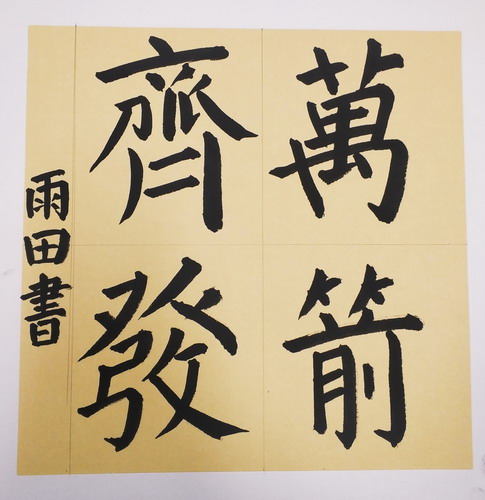 萬箭
齊發
雨田書